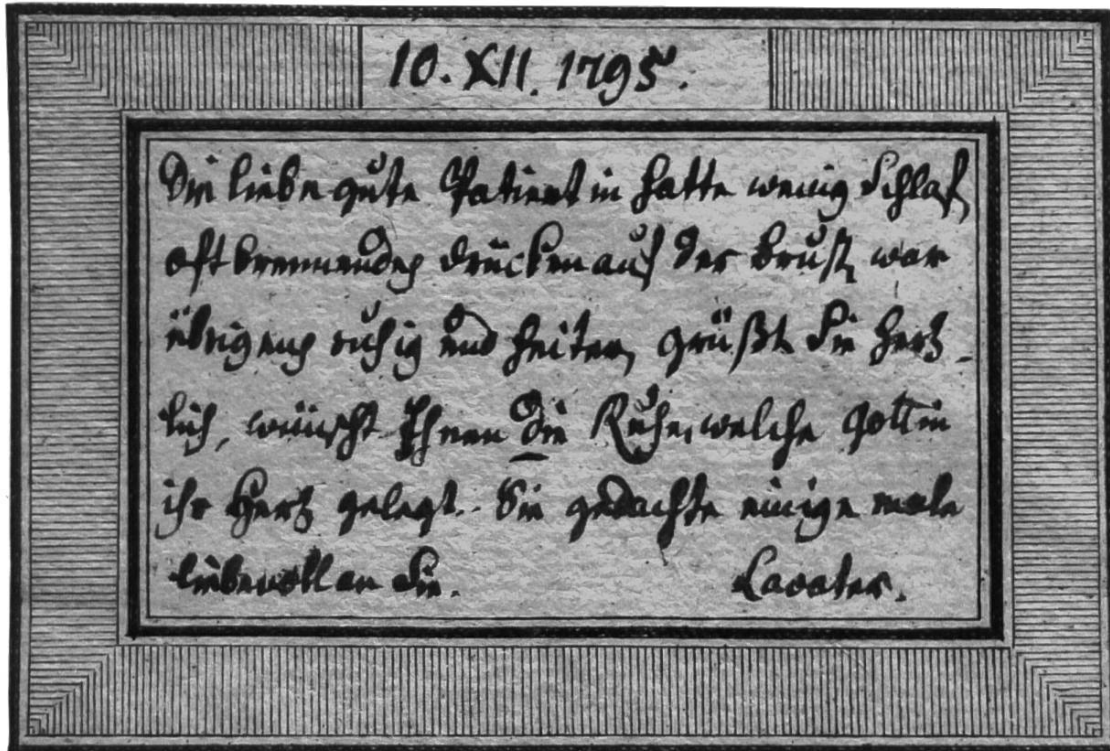 10. XII. 1795.
Die liebe gute Patientin hatte wenig Schlaf,
oft brennendes drücken auf der Brust, war
übrigens ruhig und heiter, grüßt Sie herz-
lich, wünscht Ihnen die Ruhe, welche Gott in
ihr Herz gelegt. Sie gedachte einige male
liebevoll an Sie. Lavater.